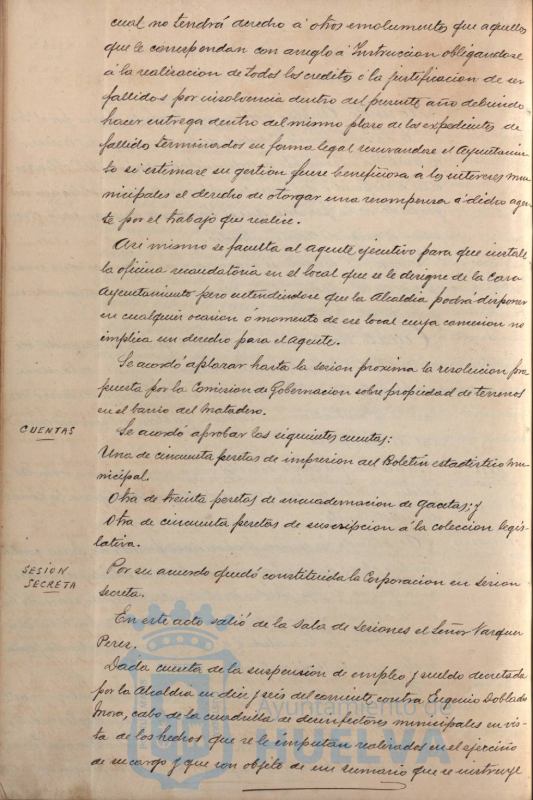 cual no tendrá derecho á otros emolumentos que aquellos
que le correspondan con arreglo á Instruccion obligandose
á la realizacion de todos los creditos o la justificacion de ser
fallidos por insolvencia dentro del presente año debiendo
hacer entrega dentro del mismo plazo de los expedientes de
fallidos terminados en forma legal reservandose el Ayuntamien-
to si estimase su gestion fuese beneficiosa á los intereses mu-
nicipales el derecho de otorgar una recompensa á dicho agen-
te por el trabajo que realice.
Asi mismo se faculta al agente ejecutivo para que instale
la oficina recaudatoria en el local que se le designe de la Casa
Ayuntamiento pero entendiendose que la Alcaldia podrá disponer
en cualquier ocasion ó momento de ese local cuya concesion no
implica un derecho para el agente.
Se acordó aplazar hasta la sesion proxima la resolucion pro
puesta por la Comision de Gobernacion sobre propiedad de terrenos
en el barrio del Matadero.
CUENTAS
Se acordó aprobar las siguientes cuentas:
Una de cincuenta pesetas de impresion del Boletin estadistico mu-
nicipal.
Otra de treinta pesetas de encuadernacion de Gacetas; y
Otra de cincuenta pesetas de suscripcion á la coleccion legis-
lativa.
SESION
SECRETA
Por su acuerdo quedó constituida la Corporacion en sesion
secreta.
En este acto salió de la Sala de Sesiones el Señor Vazquez
Perez.
Dada cuenta de la suspension de empleo y sueldo decretada
por la Alcaldia en diez y seis del corriente contra Eugenio Doblado
Mora, cabo de la cuadrilla de desinfectores municipales en vis-
ta de los hechos que se le imputan realizados en el ejercicio
de su cargo y que son objeto de un sumario que se instruye
Ayuntamiento de
HUELVA